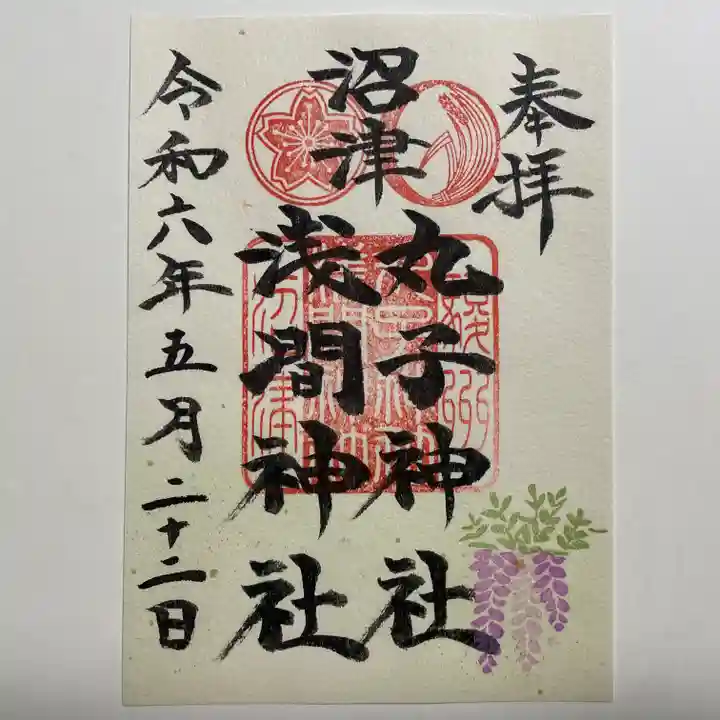 奉拝
沼津
丸子神社
浅間神社
令和六年五月二十二日